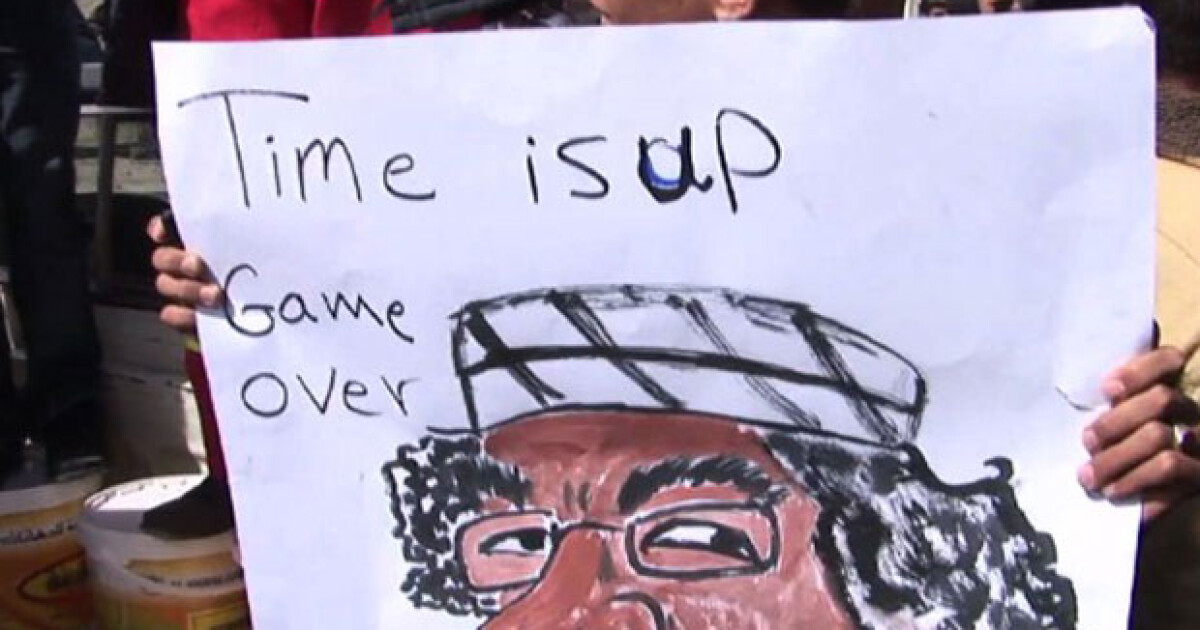 Time is up
Game
over